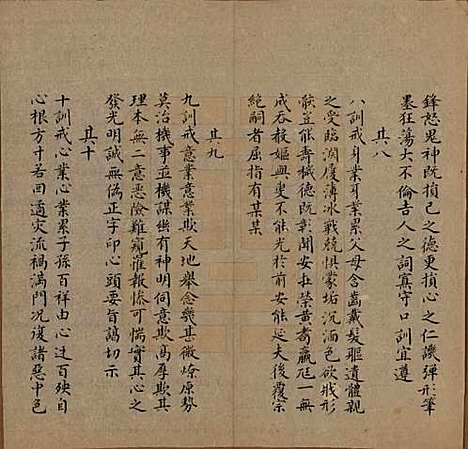 鋒怒鬼神既損己之德更損心之仁譏彈形筆
墨狂蕩大不倫古人之詞真守口訓宜遵
其八
八訓戒身業身業累父母含齒戴髮軀遺體親
之受臨淵履薄冰戰兢惧蒙垢沉湎色欲戕形
骸豈能壽穢德既彰聞安社榮黃耇嬴廷一無
成呑殺嫗興更不能光於前安能延夫後覆宗
絕嗣者屈指有某某
其九
九訓戒意業意業欺天地舉念幾甚微燎原勢
莫治機事並機謀幽有神明伺意欺萬摩欺其
理本無二意惡險難窺雀報慘可惴實其心之
發光明誠無偽正字印心頭要旨謁切示
其十
十訓戒心業心業累子孫百祥由心迓百殃自
心根方寸若回遹灾流禍滿門况復諸惡中色